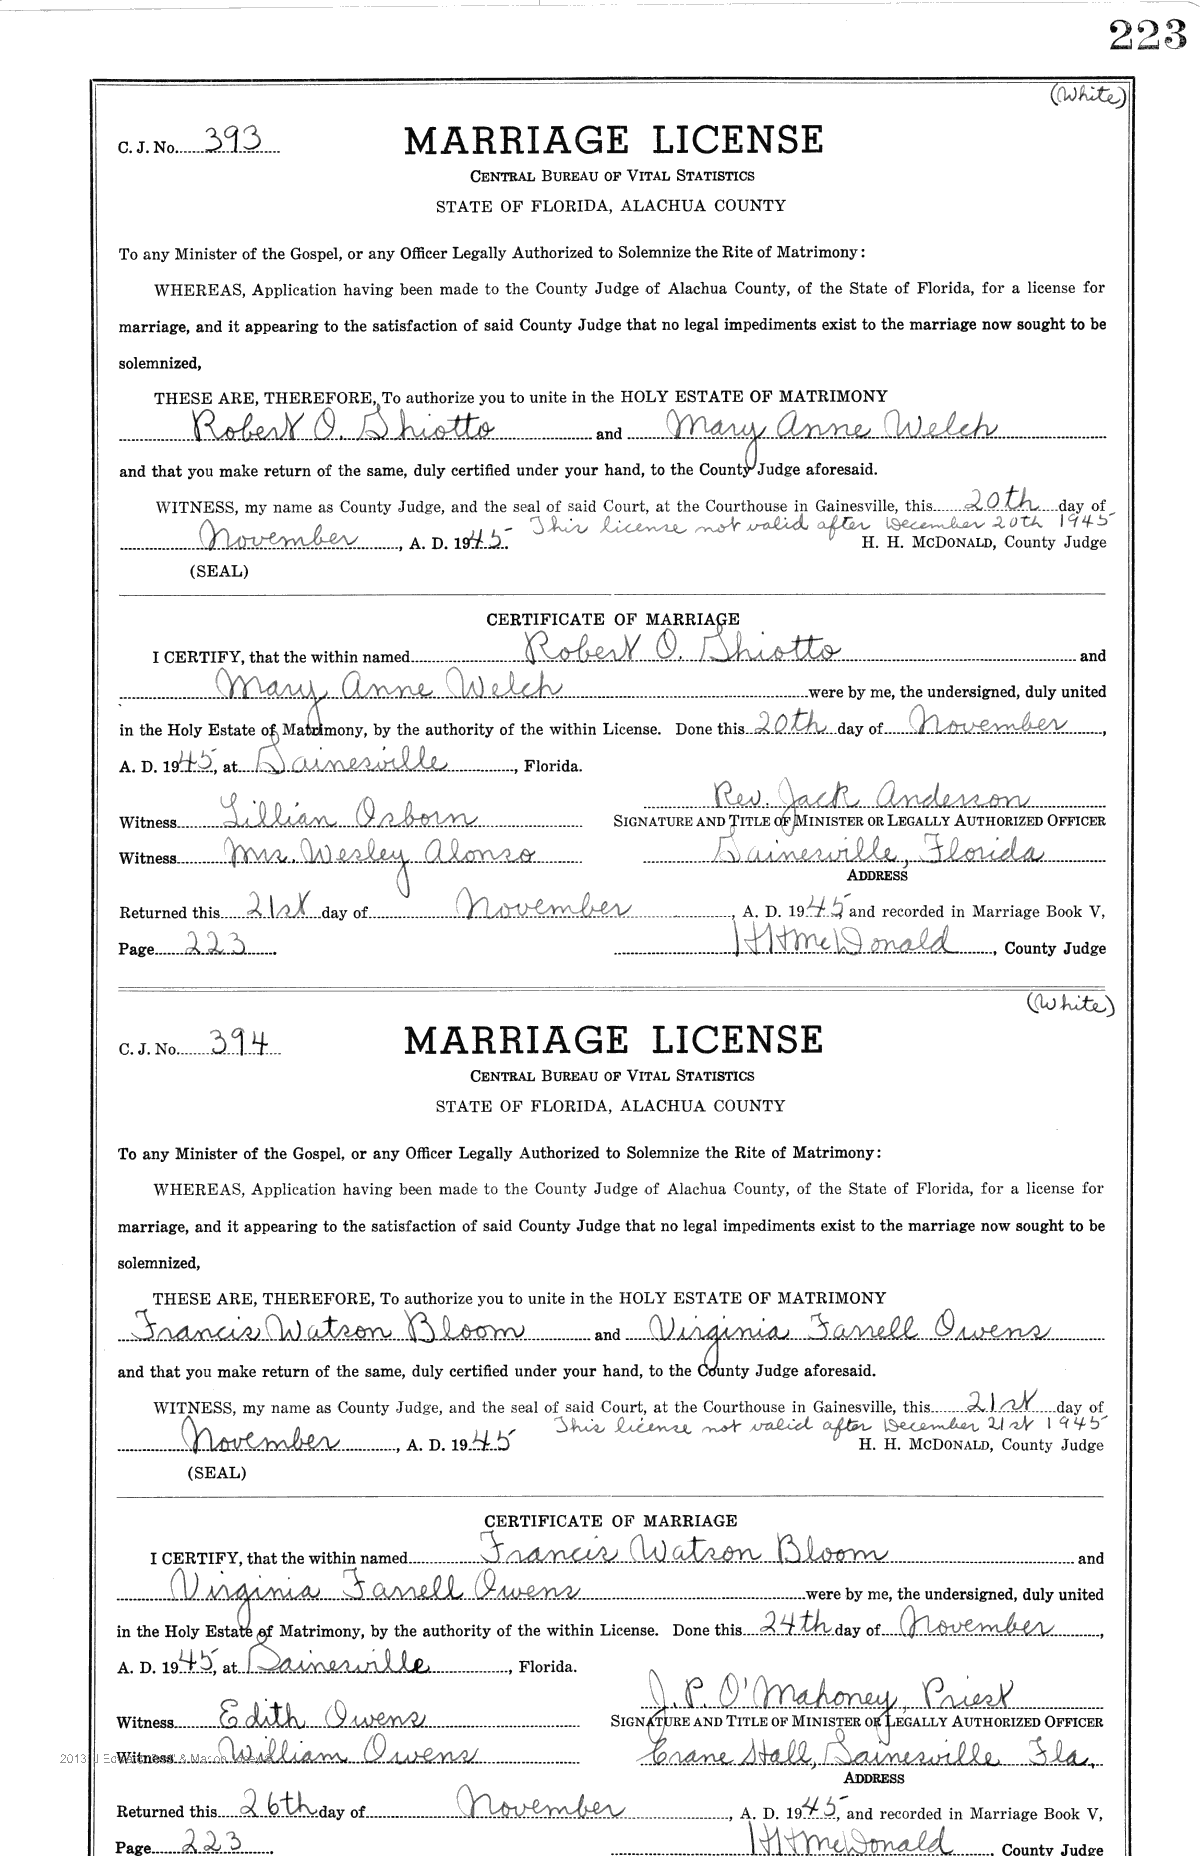 223
(White)
C. J. No. 393 MARRIAGE LICENSE
CENTRAL BUREAU OF VITAL STATISTICS
STATE OF FLORIDA, ALACHUA COUNTY
To any Minister of the Gospel, or any Officer Legally Authorized to Solemnize the Rite of Matrimony:
WHEREAS, Application having been made to the County Judge of Alachua County, of the State of Florida, for a license for
marriage, and it appearing to the satisfaction of said County Judge that no legal impediments exist to the marriage now sought to be
solemnized,
THESE ARE, THEREFORE, To authorize you to unite in the HOLY ESTATE OF MATRIMONY
Robert O. Ghiotto and Mary Anne Welch
and that you make return of the same, duly certified under your hand, to the County Judge aforesaid.
WITNESS, my name as County Judge, and the seal of said Court, at the Courthouse in Gainesville, this 20th day of
This license not valid after December 20th 1945
November, A. D. 1945. H. H. MCDONALD, County Judge
(SEAL)
CERTIFICATE OF MARRIAGE
I CERTIFY, that the within named Robert O. Ghiotto and
Mary Anne Welch were by me, the undersigned, duly united
in the Holy Estate of Matrimony, by the authority of the within License. Done this 20th day of November,
A. D. 1945, at Gainesville, Florida.
Rev. Jack Anderson
Witness Lillian Osborn SIGNATURE AND TITLE OF MINISTER OR LEGALLY AUTHORIZED OFFICER
Witness Mrs. Wesley Alonso Gainesville, Florida
ADDRESS
Returned this 21st day of November, A. D. 1945 and recorded in Marriage Book V,
Page 223. H H McDonald, County Judge
(White)
C. J. No. 394 MARRIAGE LICENSE
CENTRAL BUREAU OF VITAL STATISTICS
STATE OF FLORIDA, ALACHUA COUNTY
To any Minister of the Gospel, or any Officer Legally Authorized to Solemnize the Rite of Matrimony:
WHEREAS, Application having been made to the County Judge of Alachua County, of the State of Florida, for a license for
marriage, and it appearing to the satisfaction of said County Judge that no legal impediments exist to the marriage now sought to be
solemnized,
THESE ARE, THEREFORE, To authorize you to unite in the HOLY ESTATE OF MATRIMONY
Francis Watson Bloom and Virginia Farrell Owens
and that you make return of the same, duly certified under your hand, to the County Judge aforesaid.
WITNESS, my name as County Judge, and the seal of said Court, at the Courthouse in Gainesville, this 21st day of
This license not valid after December 21st 1945
November, A. D. 1945 H. H. MCDONALD, County Judge
(SEAL)
CERTIFICATE OF MARRIAGE
I CERTIFY, that the within named Francis Watson Bloom and
Virginia Farrell Owens were by me, the undersigned, duly united
in the Holy Estate of Matrimony, by the authority of the within License. Done this 24th day of November,
A. D. 1945, at Gainesville, Florida.
J. P. O'Mahoney, Priest
Witness Edith Owens SIGNATURE AND TITLE OF MINISTER OR LEGALLY AUTHORIZED OFFICER
Witness William Owens Crane Hall, Gainesville Fla.
ADDRESS
Returned this 26th day of November, A. D. 1945, and recorded in Marriage Book V,
Page 223. H H McDonald, County Judge